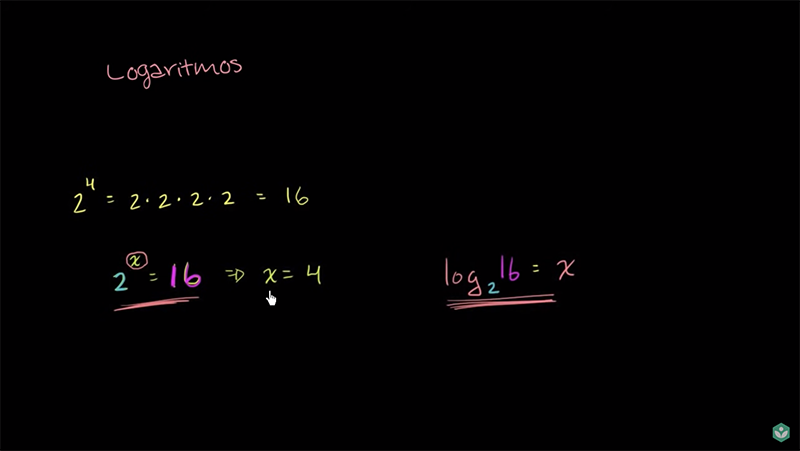 Logaritmos
2⁴ = 2 · 2 · 2 · 2 = 16
2ˣ = 16 ⇒ x = 4
log₂ 16 = x